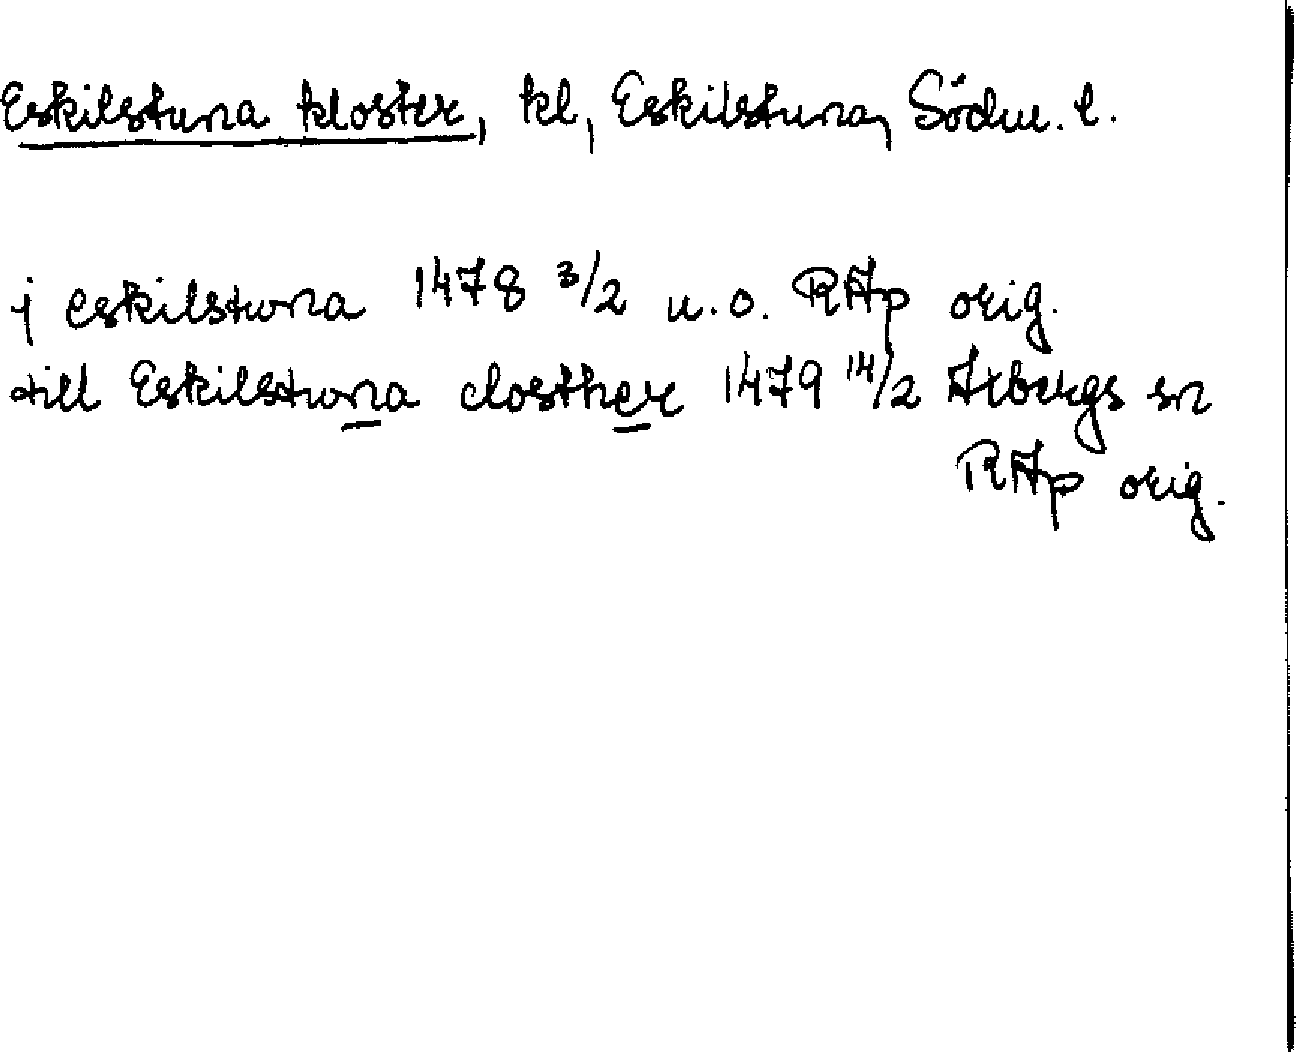 Eskilstuna kloster, kl, Eskilstuna, Södm. l.
j eskilstwna 1478 3/2 u.o. RAp orig.
till Eskilstwna closther 1479 14/2 Arbergs sn
RAp orig.